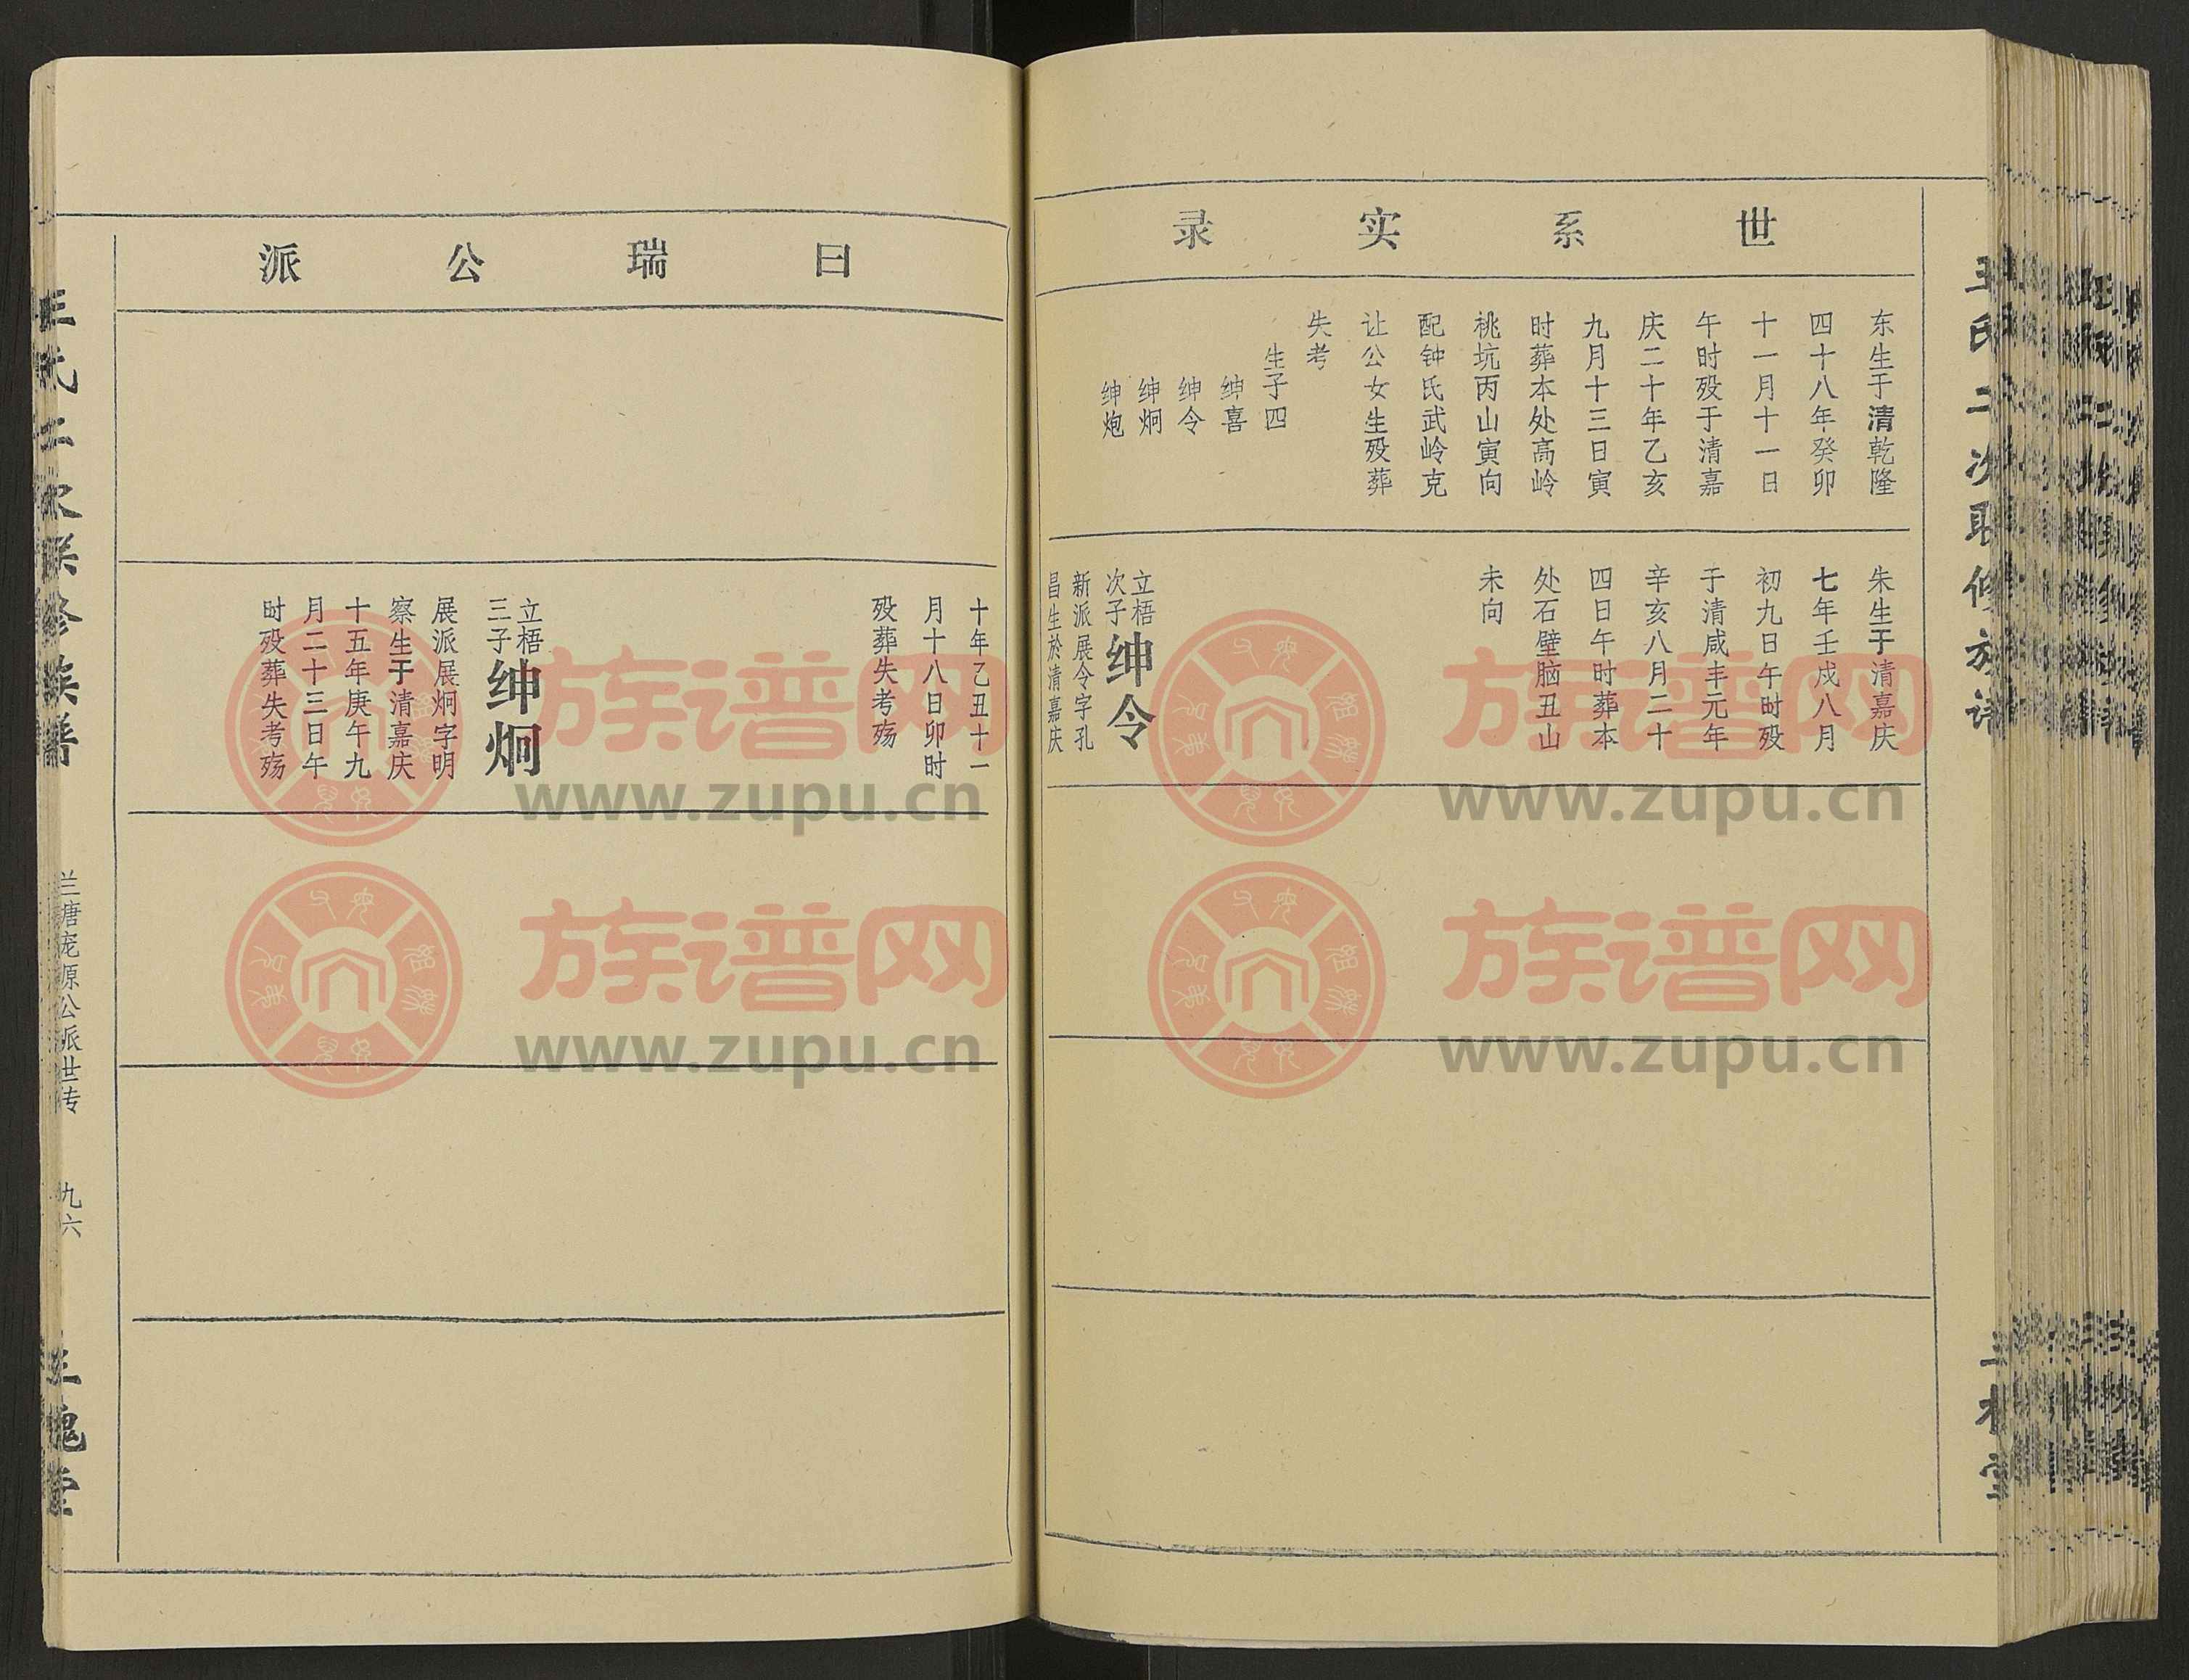 世系实录
东生于清乾隆
四十八年癸卯
十一月十一日
午时殁于清嘉
庆二十年乙亥
九月十三日寅
时葬本处高岭
桃坑丙山寅向
配钟氏武岭克
让公女生殁葬
失考
生子四
绅喜
绅令
绅炯
绅炮
朱生于清嘉庆
七年壬戍八月
初九日午时殁
于清咸丰元年
辛亥八月二十
四日午时葬本
处石壁脑丑山
未向
立梧
次子
绅令
新派展令字孔
昌生於清嘉庆
曰瑞公派
十年乙丑十一
月十八日卯时
殁葬失考殇
立梧
三子
绅炯
展派展炯字明
察生于清嘉庆
十五年庚午九
月二十三日午
时殁葬失考殇
王氏二次联修族谱
兰唐宠原公派世传
九六
三槐堂
族谱网
www.zupu.cn
族谱网
www.zupu.cn
族谱网
www.zupu.cn
族谱网
www.zupu.cn